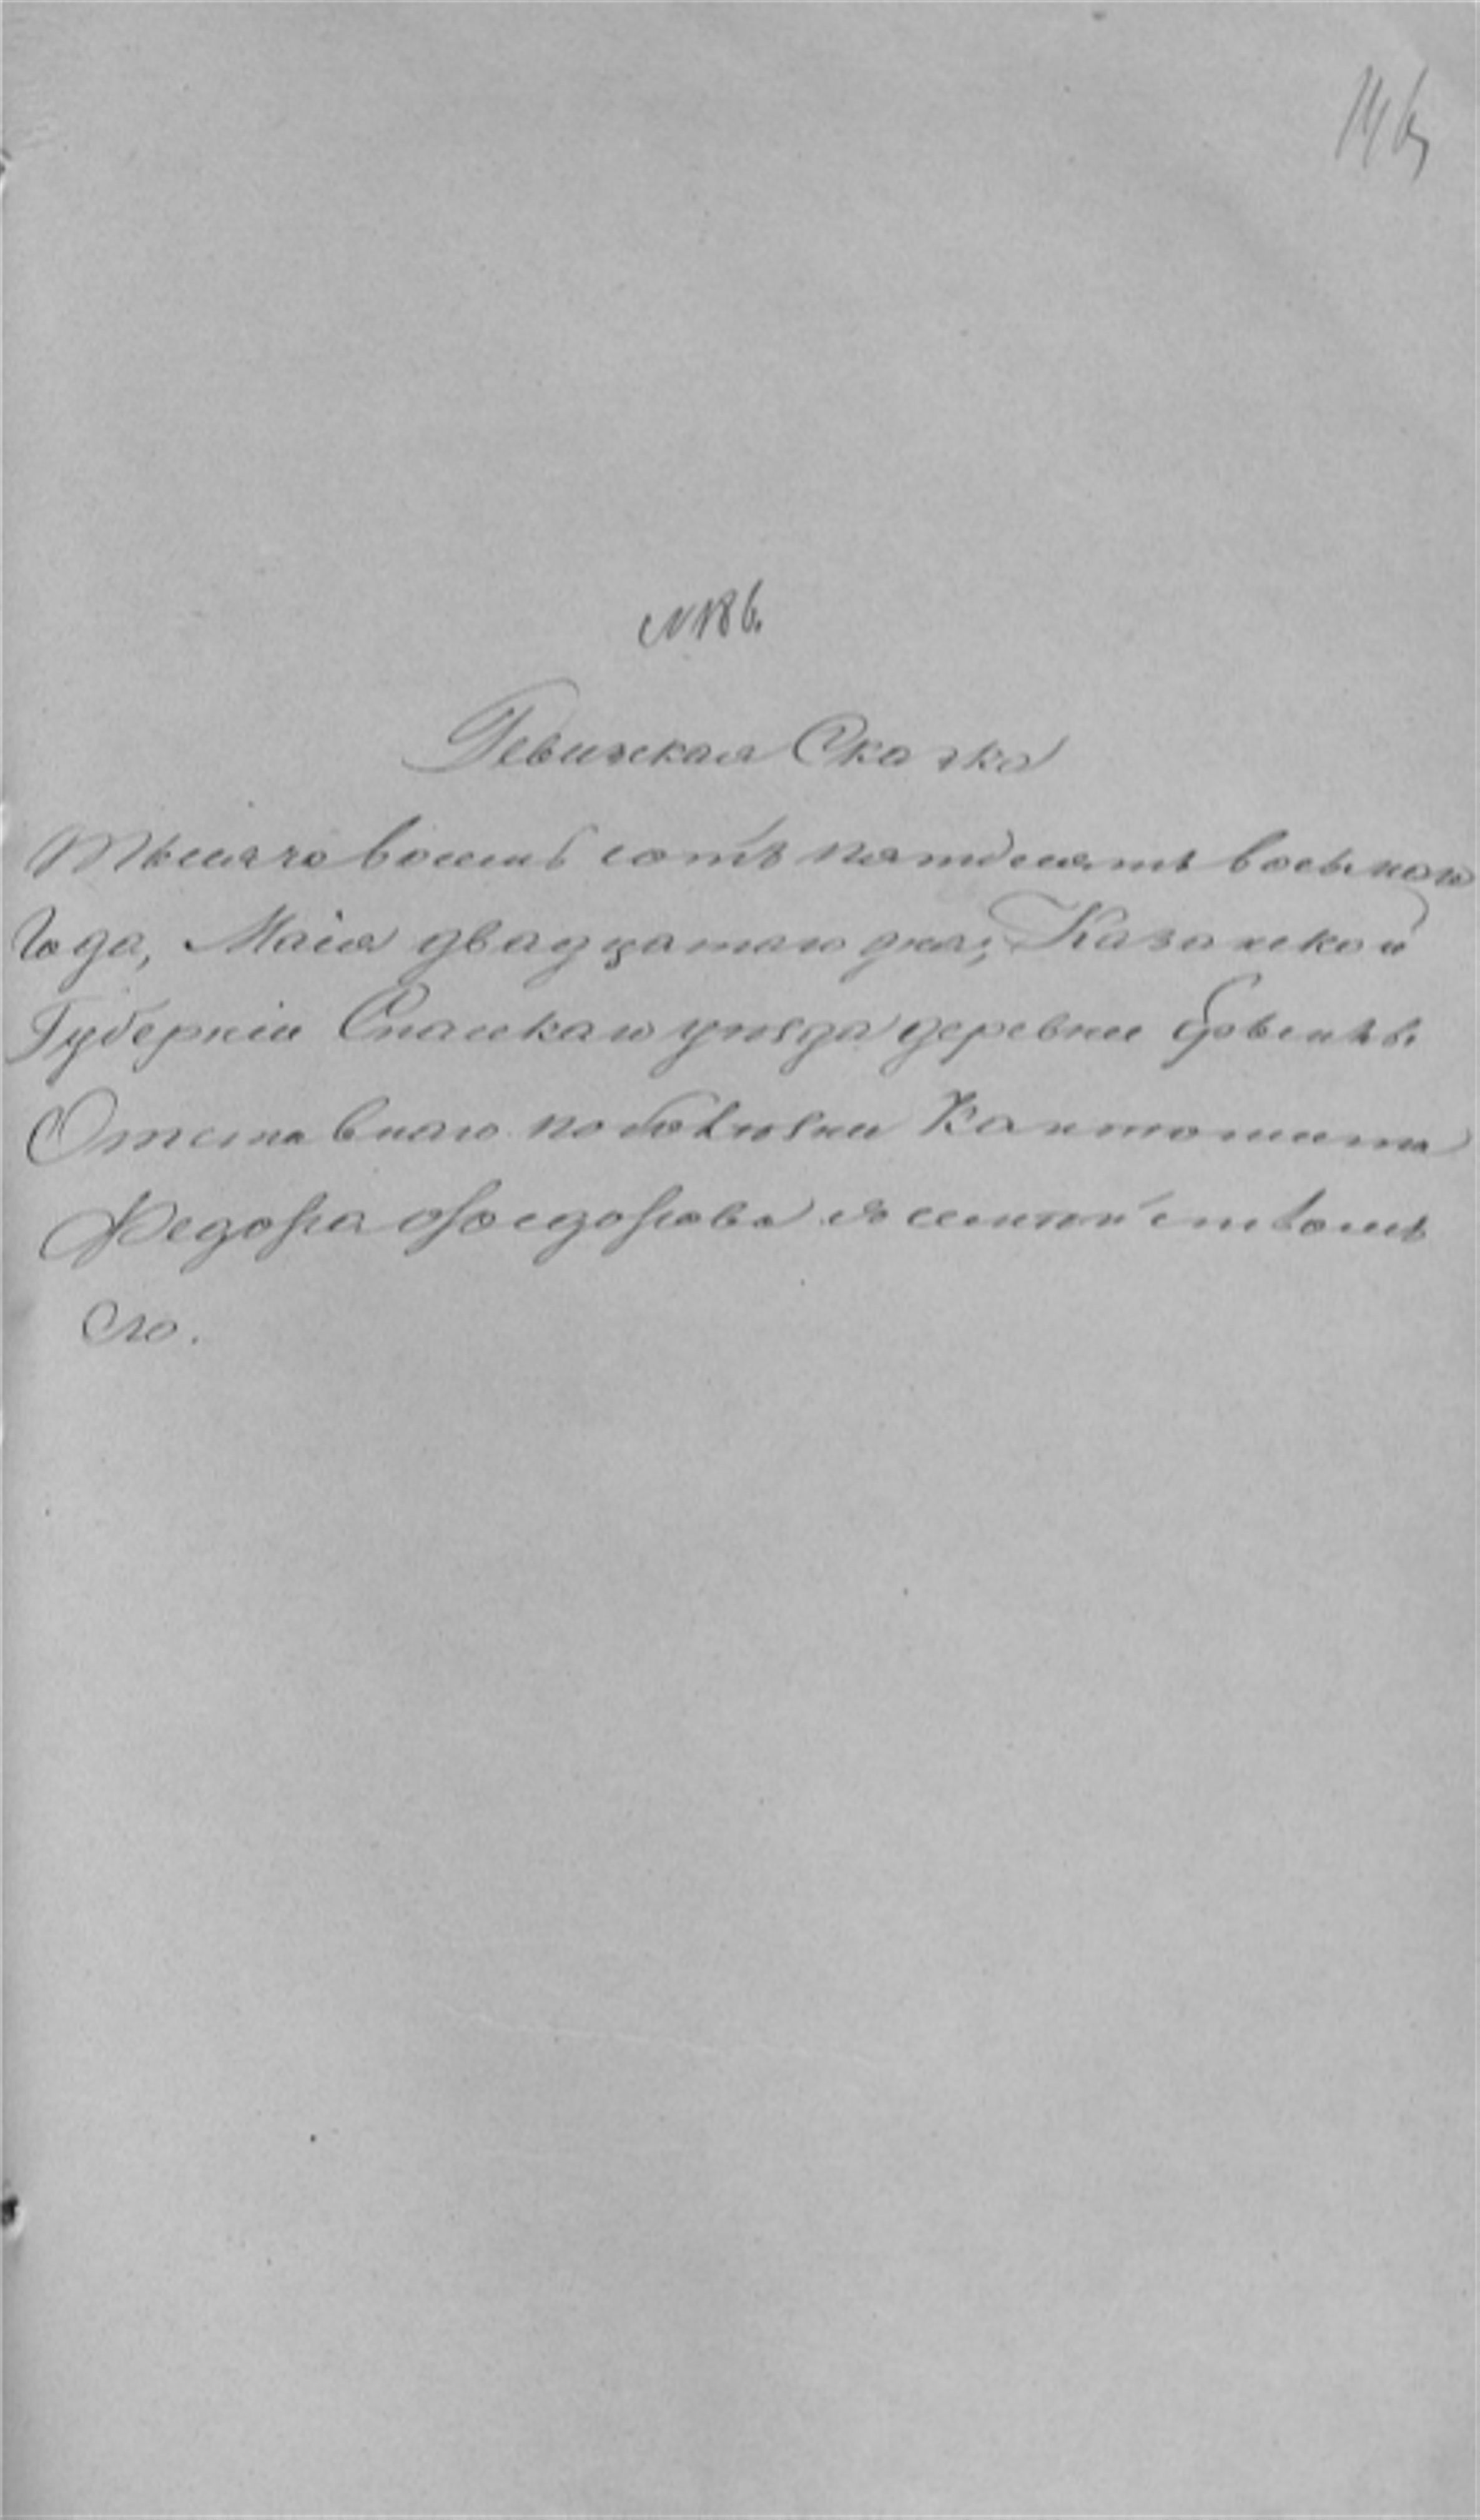 146
№ 186.
Ревижская Сказка
Тысяча восемь сотъ пятидесятъ восьмого
Года, Маія двадцатаго дня, Казанской
Губерніи Спаскаго уѣзда деревни
Отставнаго по болѣзни Кантониста
Федора Федорова с семействомъ
его.